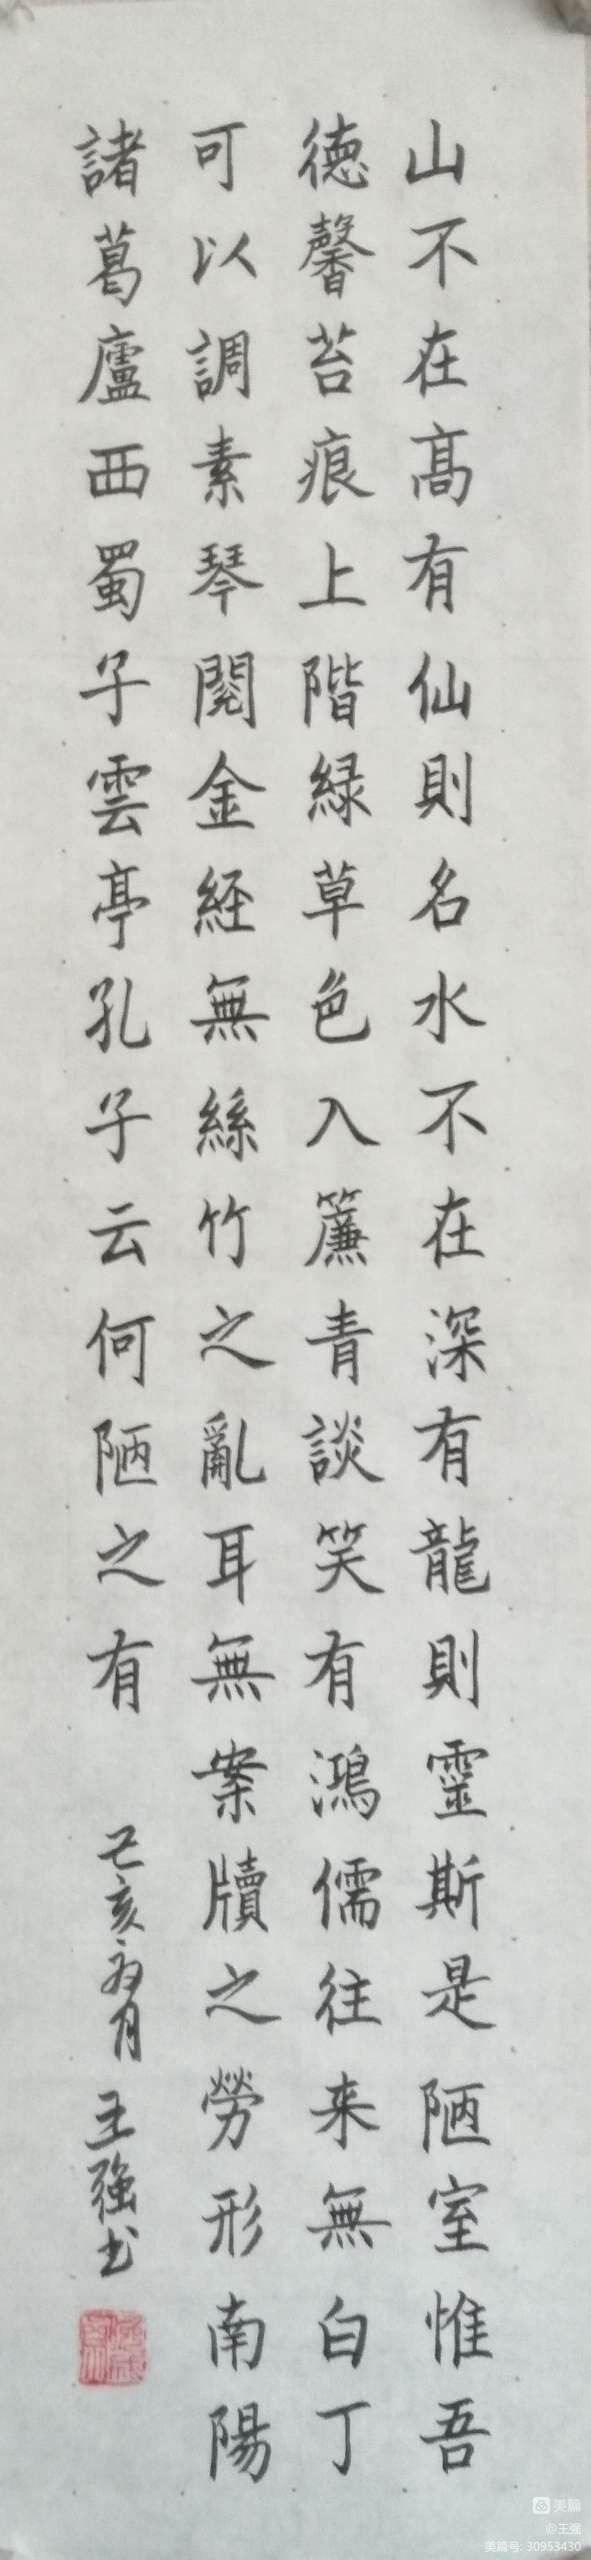 山不在髙有仙則名水不在深有龍則靈斯是陋室惟吾
德馨苔痕上階緑草色入簾青談笑有鴻儒往来無白丁
可以調素琴閱金経無絲竹之亂耳無案牘之勞形南陽
諸葛廬西蜀子雲亭孔子云何陋之有
己亥 月 王強书
美篇
@王强
美篇号: 30953430